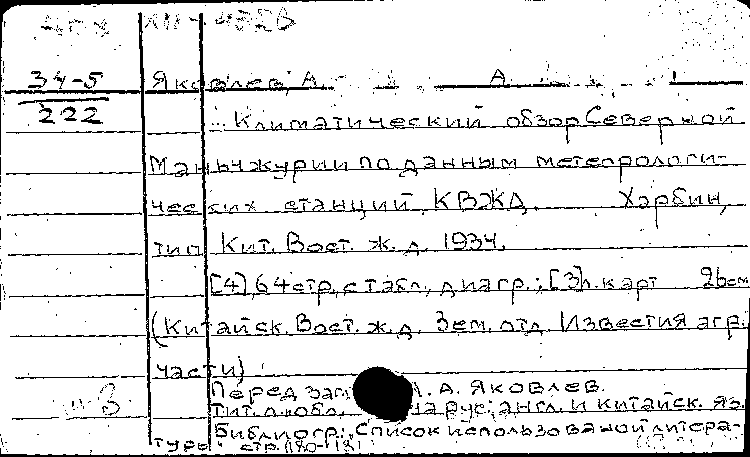 34-5
222
Яковлев, А. А.
Климатический обзор Северной
Маньчжурии по данным метеорологи-
ческих станций КВЖД. Харбин,
тип Кит. Вост. ж. д. 1934.
[4], 64 стр, с табл., диагр.; [3] л. карт 26 см
(Китайск. Вост. ж. д. Зем. отд. Известия агр.
части)
Перед А. А. Яковлев.
Тит. л. рус; англ. и китайск. яз.
Библиогр.: Список использованой литера-
туры: стр.